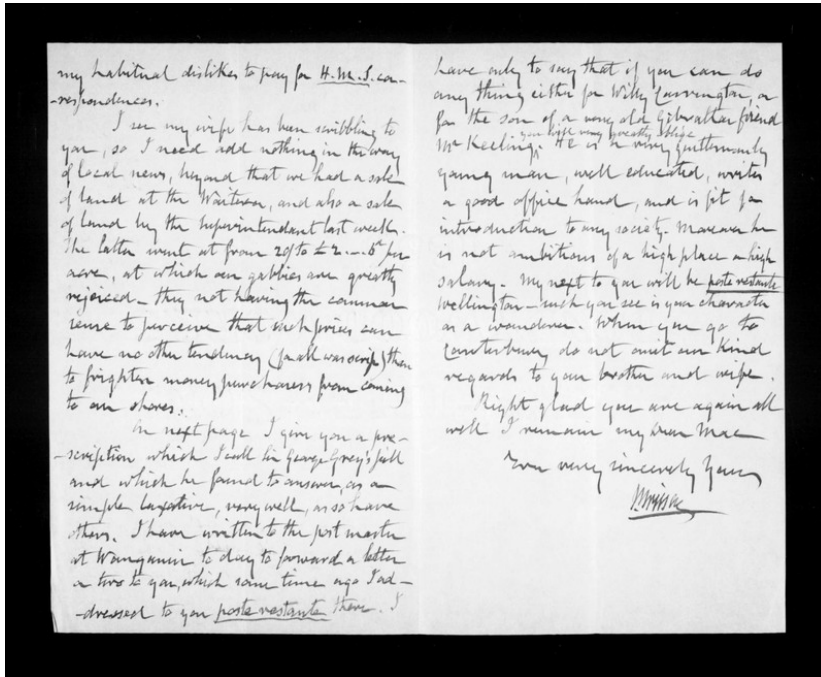 my habitual dislikes to pay for H.M.S. cor-
-respondences.
I see my wife has been scribbling to
you, so I need add nothing in the way
of local news, beyond that we had a sale
of land at the Waitema, and also a sale
of land by the Superintendant last week.
The latter went at from 20/ to £2 . - . 6d per
acre, at which our gabbies are greatly
rejoiced - they not having the common
sense to perceive that such prices can
have no other tendency (for all was scrip) than
to frighten money purchasers from coming
to our shores.
On next page I give you a pre-
-scription which I call Sir George Grey's pill
and which he found to answer, as a
simple laxative, very well, as so have
others. I have written to the post master
at Wanganui to day to forward a letter
or two to you, which some time ago I ad-
-dressed to you poste restante there. I
have only to say that if you can do
any thing either for Willy Carrington, or
for the son of a very old Gibraltar friend
you will very greatly oblige
Mr Keeling. He is a very gentlemanly
young man, well educated, writes
a good office hand, and is fit for
introduction to any society. Moreover he
is not ambitious of a high place or high
salary. My next to you will be poste restante
Wellington - such you see is your character
as a wanderer. When you go to
Canterbury do not omit our kind
regards to your brother and wife.
Right glad you are again all
well I remain my dear Mac
Ever very sincerely Yours